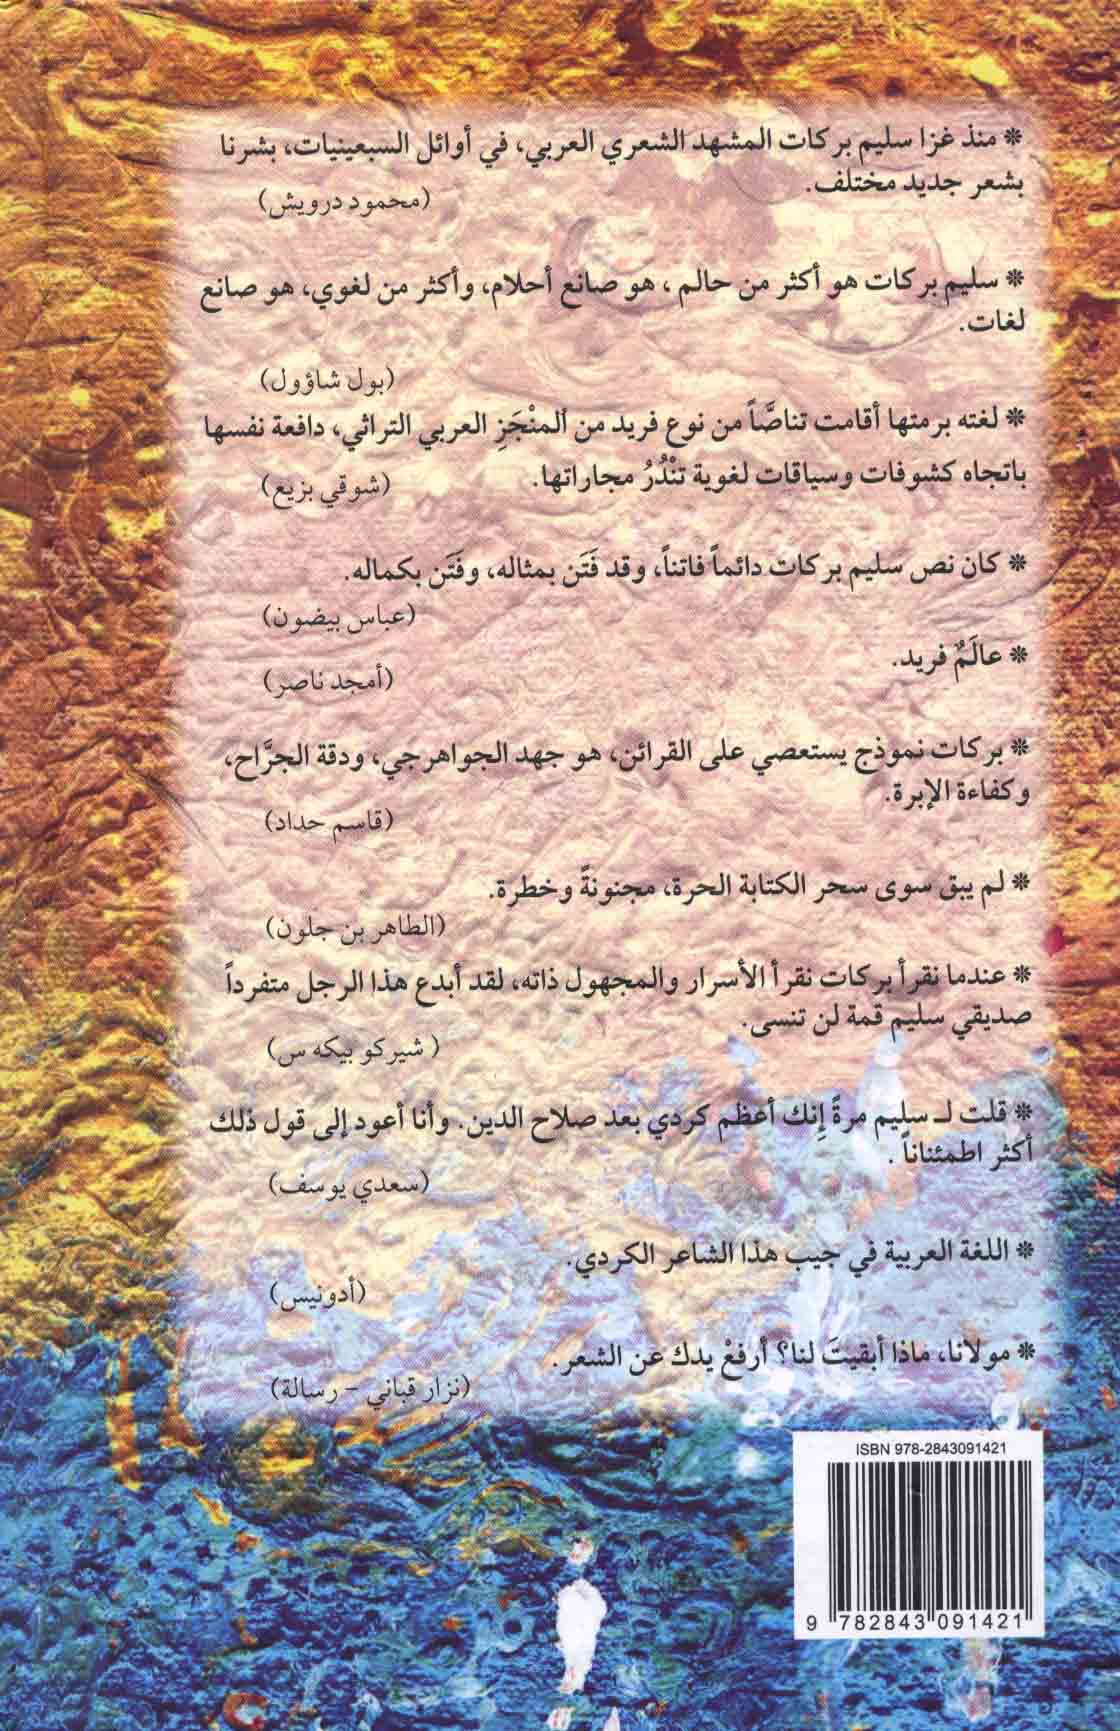 ❊ منذ غزا سليم بركات المشهد الشعري العربي، في أوائل السبعينيات، بشرنا
بشعر جديد مختلف.
(محمود درويش)
❊ سليم بركات هو أكثر من حالم ، هو صانع أحلام، وأكثر من لغوي، هو صانع
لغات.
(بول شاؤول)
❊ لغته برمتها أقامت تناصَّاً من نوع فريد من المنْجَزِ العربي التراثي، دافعة نفسها
باتجاه كشوفات وسياقات لغوية تنْدُرُ مجاراتها.
(شوقي بزيع)
❊ كان نص سليم بركات دائماً فاتناً، وقد فَتَن بمثاله، وفَتَن بكماله.
(عباس بيضون)
❊ عالَمٌ فريد.
(أمجد ناصر)
❊ بركات نموذج يستعصي على القرائن، هو جهد الجواهرجي، ودقة الجرَّاح،
وكفاءة الإبرة.
(قاسم حداد)
❊ لم يبق سوى سحر الكتابة الحرة، مجنونةً وخطرة.
(الطاهر بن جلون)
❊ عندما نقرأ بركات نقرأ الأسرار والمجهول ذاته، لقد أبدع هذا الرجل متفرداً
صديقي سليم قمة لن تنسى.
( شيركو بيكه س)
❊ قلت لـ سليم مرةً إِنك أعظم كردي بعد صلاح الدين. وأنا أعود إلى قول ذلك
أكثر اطمئناناً .
(سعدي يوسف)
❊ اللغة العربية في جيب هذا الشاعر الكردي.
(أدونيس)
❊ مولانا، ماذا أبقيتَ لنا؟ أرفعْ يدك عن الشعر.
(نزار قباني - رسالة)
ISBN 978-2843091421
9 782843 091421